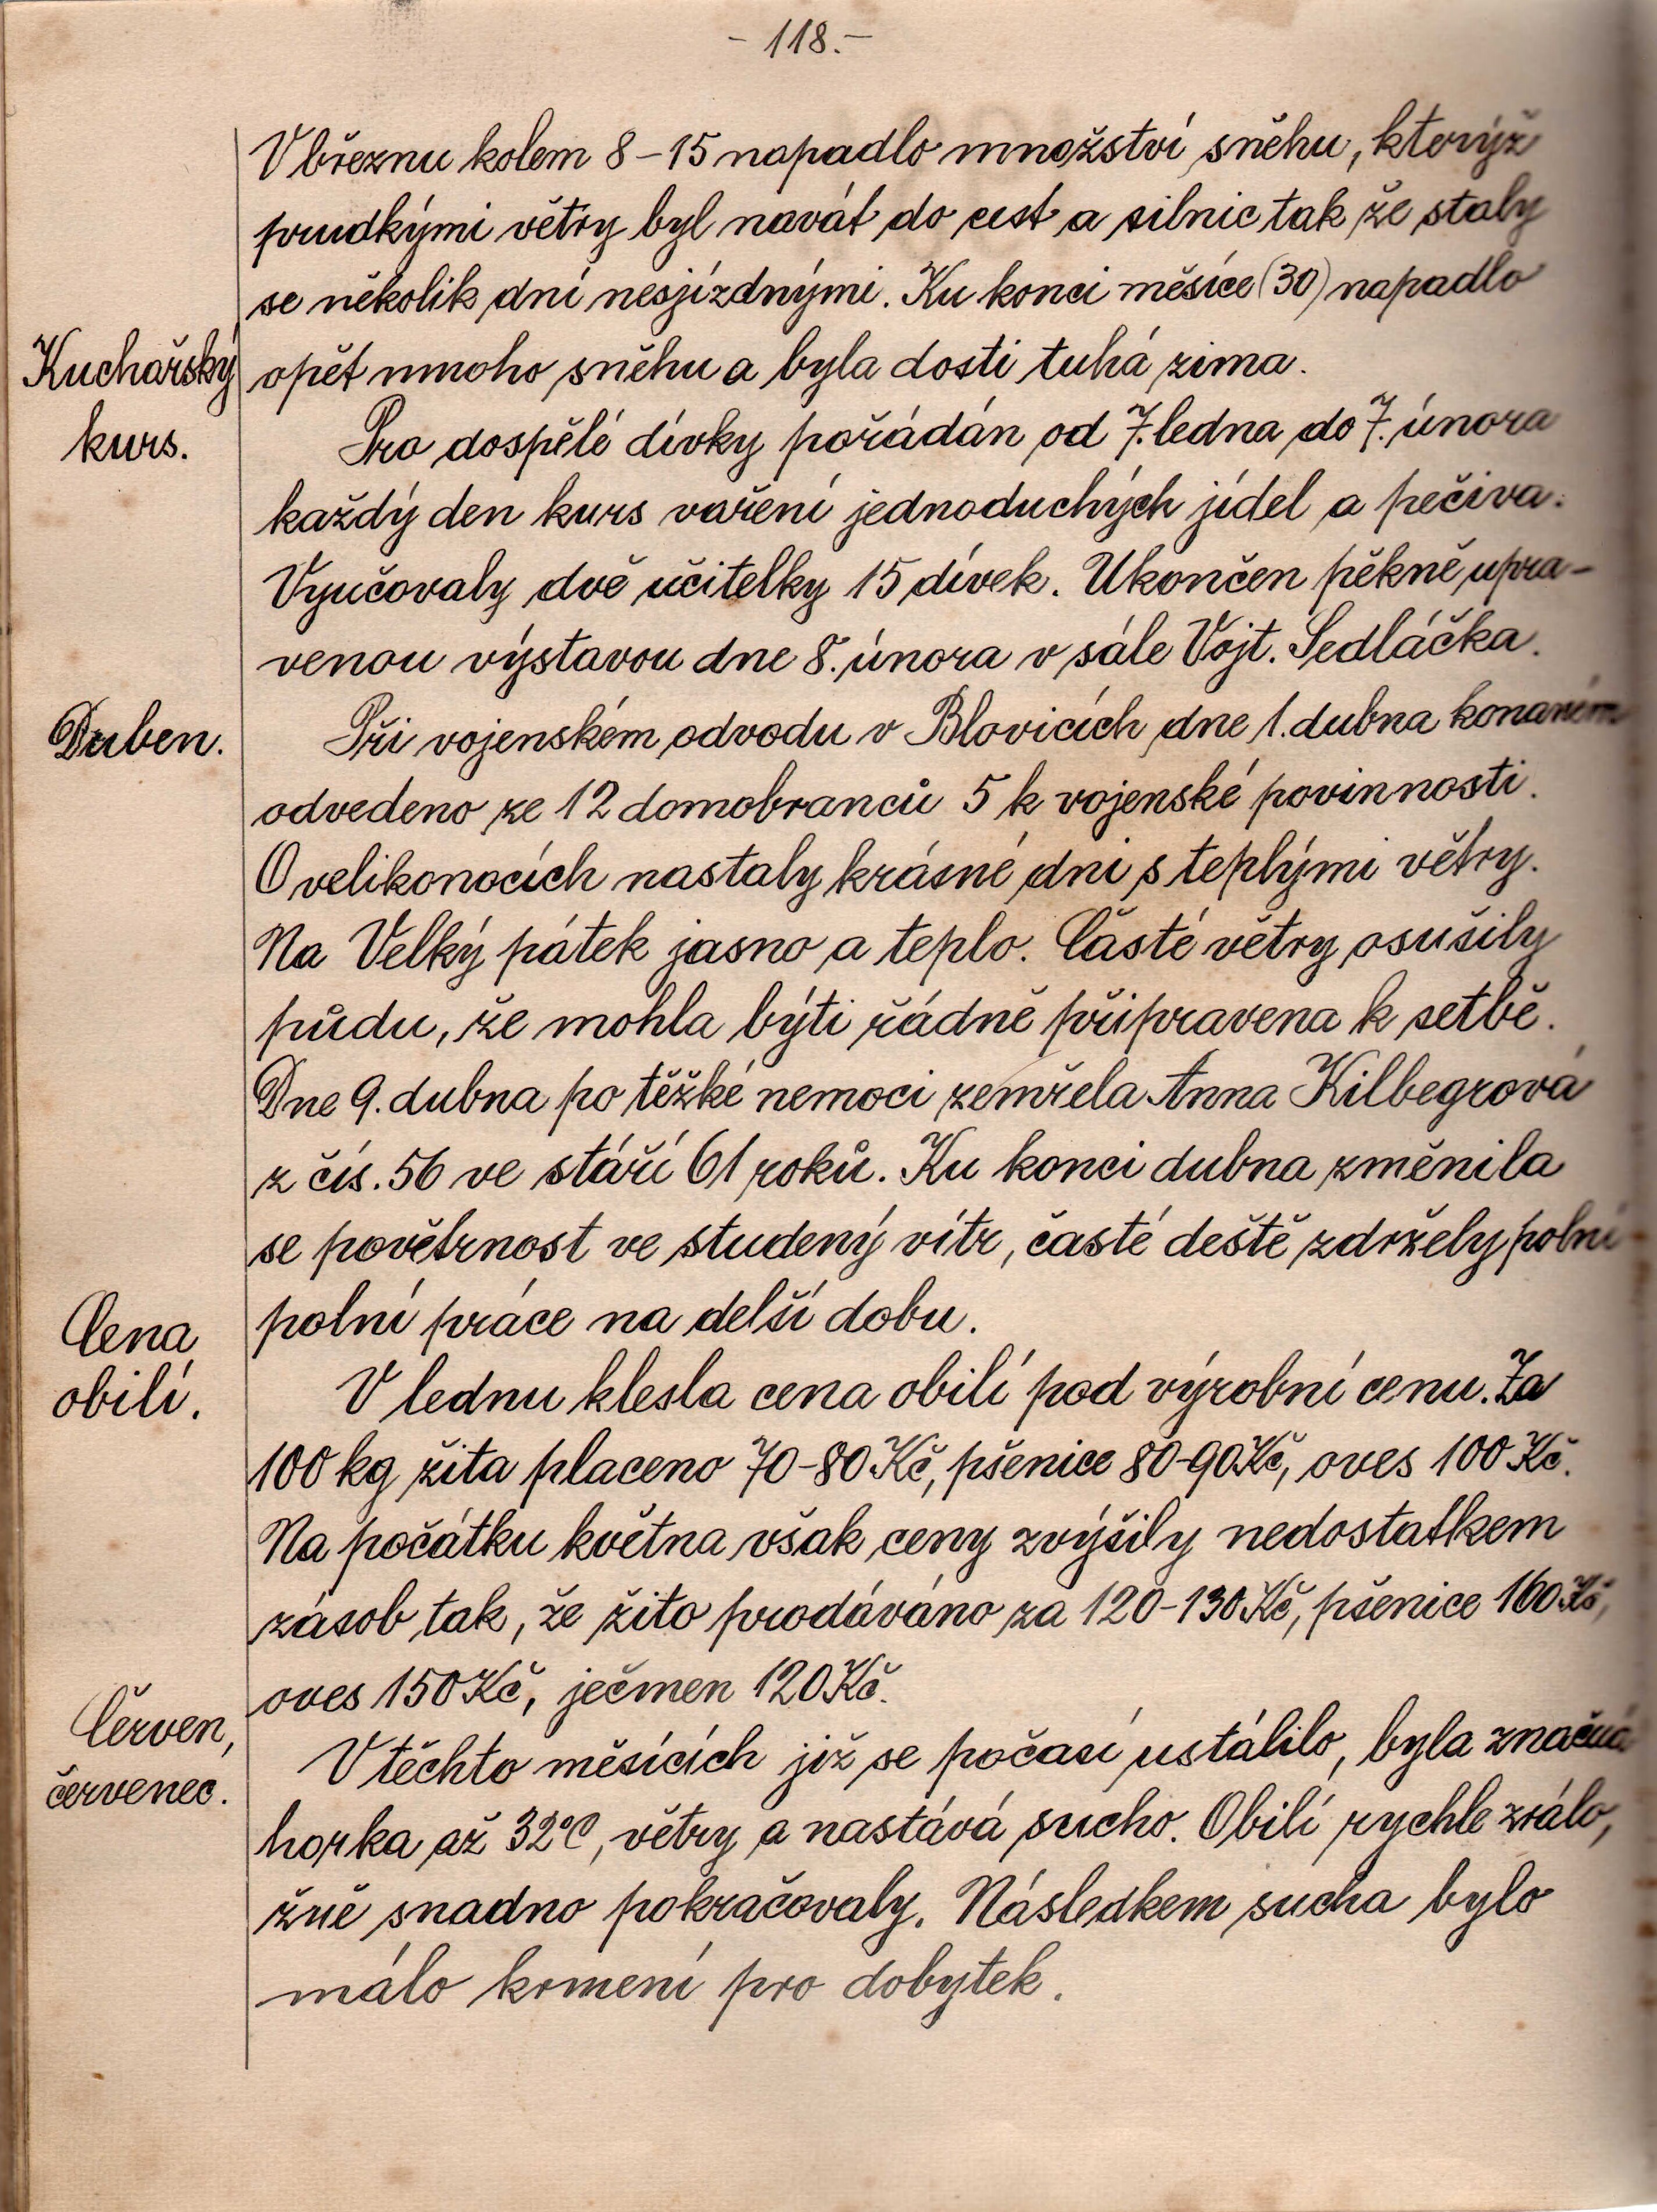 - 118. -
V březnu kolem 8-15 napadlo množství sněhu, kterýž
prudkými větry byl navát do cest a silnic tak že staly
se několik dní nesjízdnými. Ku konci měsíce (30) napadlo
Kuchařský
kurs.
opět mnoho sněhu a byla dosti tuhá zima.
Pro dospělé dívky pořádán od 7. ledna do 7. února
každý den kurs vaření jednoduchých jídel a pečiva.
Vyučovaly dvě učitelky 15 dívek. Ukončen pěkně upra-
venou výstavou dne 8. února v sále Vojt. Sedláčka.
Duben.
Při vojenském odvodu v Blovicích dne 1. dubna konaném
odvedeno ze 12 domobranců 5 k vojenské povinnosti.
O velikonocích nastaly krásné dni s teplými větry.
Na Velký pátek jasno a teplo. Časté větry osušily
půdu, že mohla býti řádně připravena k setbě.
Dne 9. dubna po těžké nemoci zemřela Anna Kilbegrová
z čís. 56 ve stáří 61 roků. Ku konci dubna změnila
se povětrnost ve studený vítr, časté deště zdržely polní
Cena
obilí.
polní práce na delší dobu.
V lednu klesla cena obilí pod výrobní cenu. Za
100 kg žita placeno 70-80 Kč, pšenice 80-90 Kč, oves 100 Kč.
Na počátku května však ceny zvýšily nedostatkem
zásob tak, že žito prodáváno za 120-130 Kč, pšenice 160 Kč,
oves 150 Kč, ječmen 120 Kč.
Červen,
červenec.
V těchto měsících již se počasí ustálilo, byla značná
horka až 32°C, větry a nastává sucho. Obilí rychle zrálo,
žně snadno pokračovaly. Následkem sucha bylo
málo krmení pro dobytek.